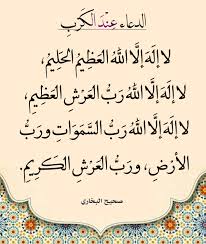 الدعاء عِنْدَ الكَرْبِ
لا إِلَهَ إِلَّا اللهُ العَظِيمُ الحَلِيمُ،
لا إِلَهَ إِلَّا اللهُ رَبُّ العَرْشِ العَظِيمِ،
لا إِلَهَ إِلَّا اللهُ رَبُّ السَّمَوَاتِ وَرَبُّ
الأَرْضِ، وَرَبُّ العَرْشِ الكَرِيمِ.
صحيح البخاري